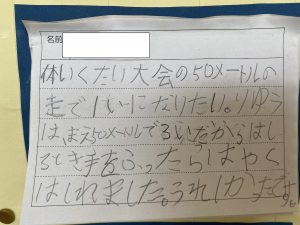 名前
体いくたい大会の50メートルの
走で1いになりたい。りゆう
は、まえ50メートルで3いだからはし
るとき手をふったらはやく
はしれました。うれしかったです。